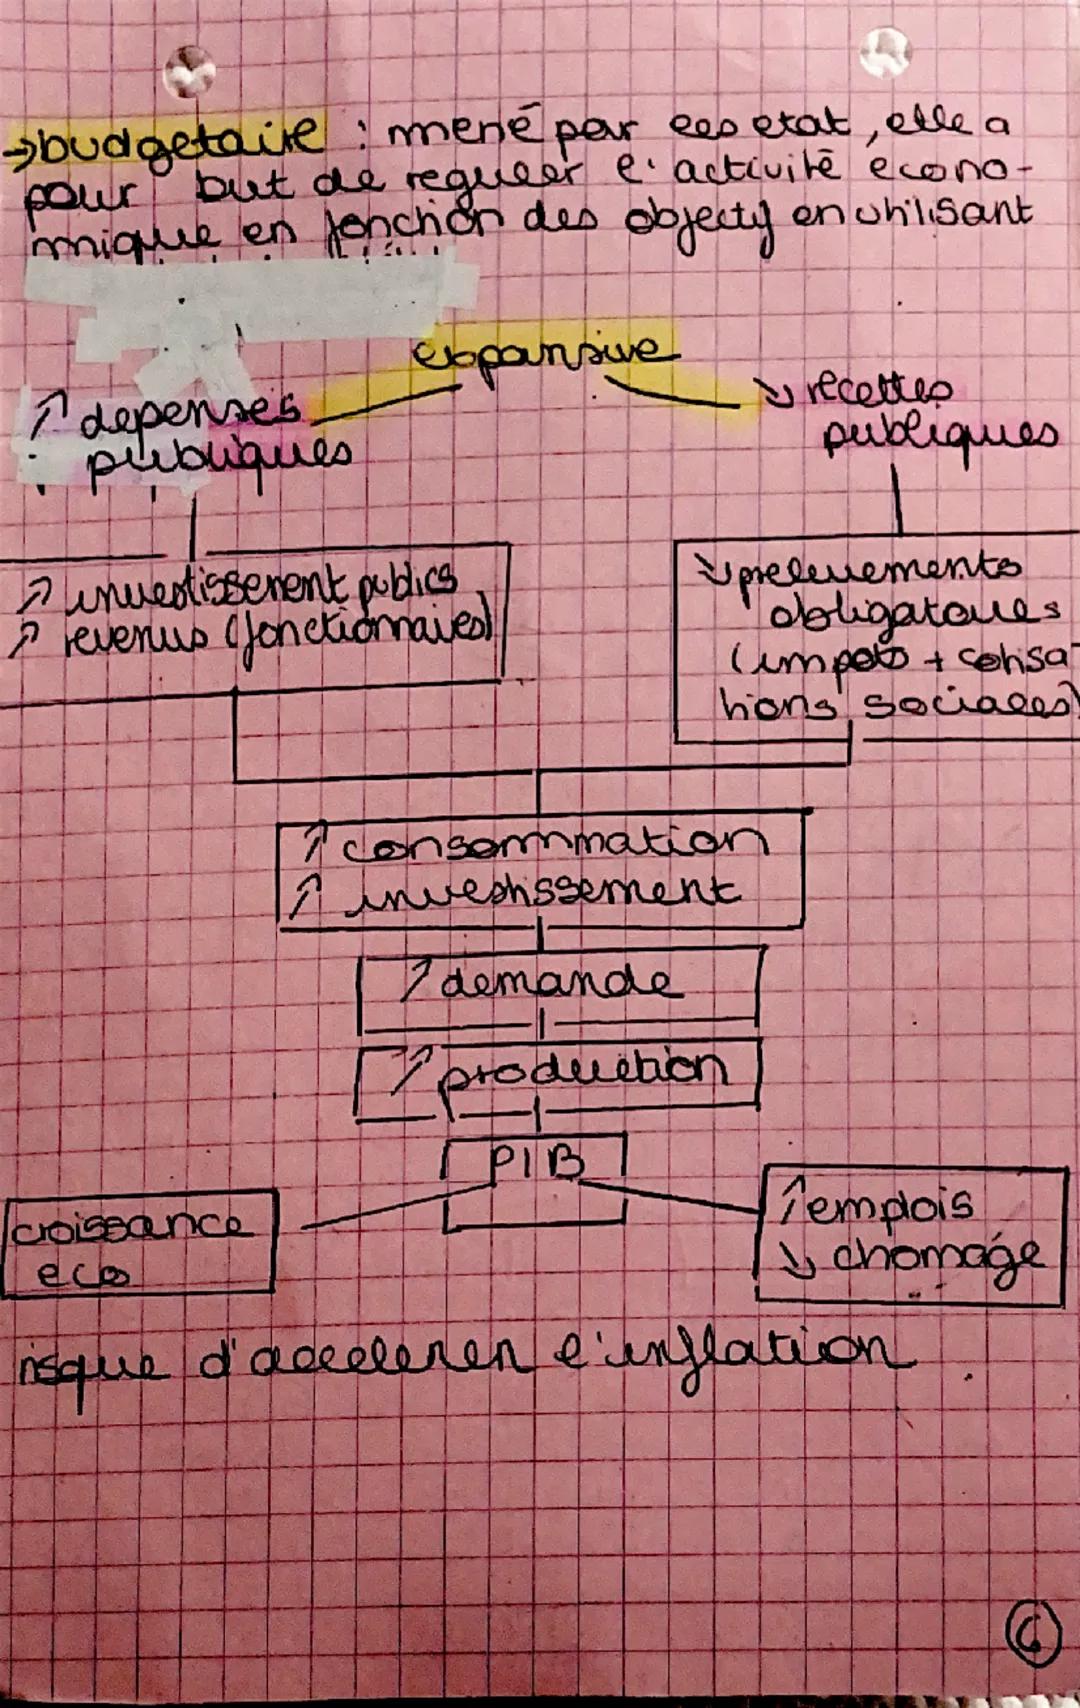 →budgetaire : mené par les etat, elle a
pour but de reguler l'activité écono-
mique en fonction des objectif en utilisant
expansive
↗ depenses
publiques
↘ recettes
publiques
↗ investissement publics
↗ revenus (fonctionnaires)
↘ prelevements
obligatoires
(impots + cotisa-
tions sociales)
↗ consommation
↗ investissement
↗ demande
↗ production
PIB
croissance
eco
↗ emplois
↘ chomage
risque d'accelerer l'inflation
6